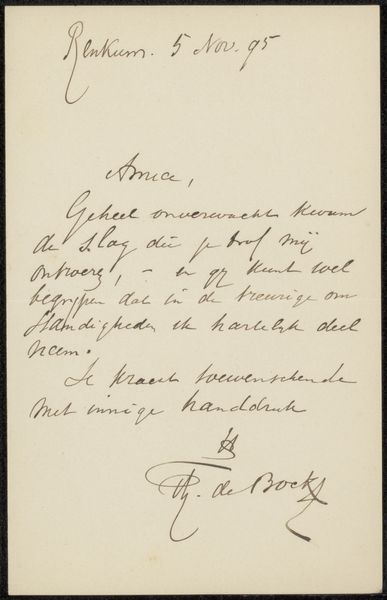 Renkum. 5 Nov. 95
Amice,
Geheel onverwacht kwam
de slag die je trof mij
, - en gij kunt wel
begrijpen dat in de treurige om
standigheden ik hartelijk deel
neem.
Je kracht toewenschende
met innige handdruk
Th. de Bock